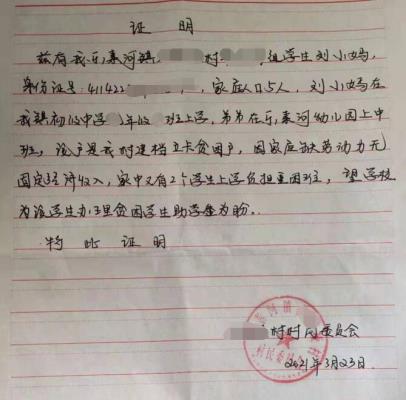 证 明
兹有我乐 河镇 村 组学生刘小
身份证号:411422 ,家庭人口5人,刘小 在
我镇初级中学 年级 班上学,弟弟在乐 河幼儿园上中
班,该户是我村建档立卡贫困户,因家庭缺劳动力无
固定经济收入,家中又有2个学生上学负担重困难,望学校
为该学生办理贫困学生助学金为盼。
特 此 证 明
村村民委员会
2021年3月23日